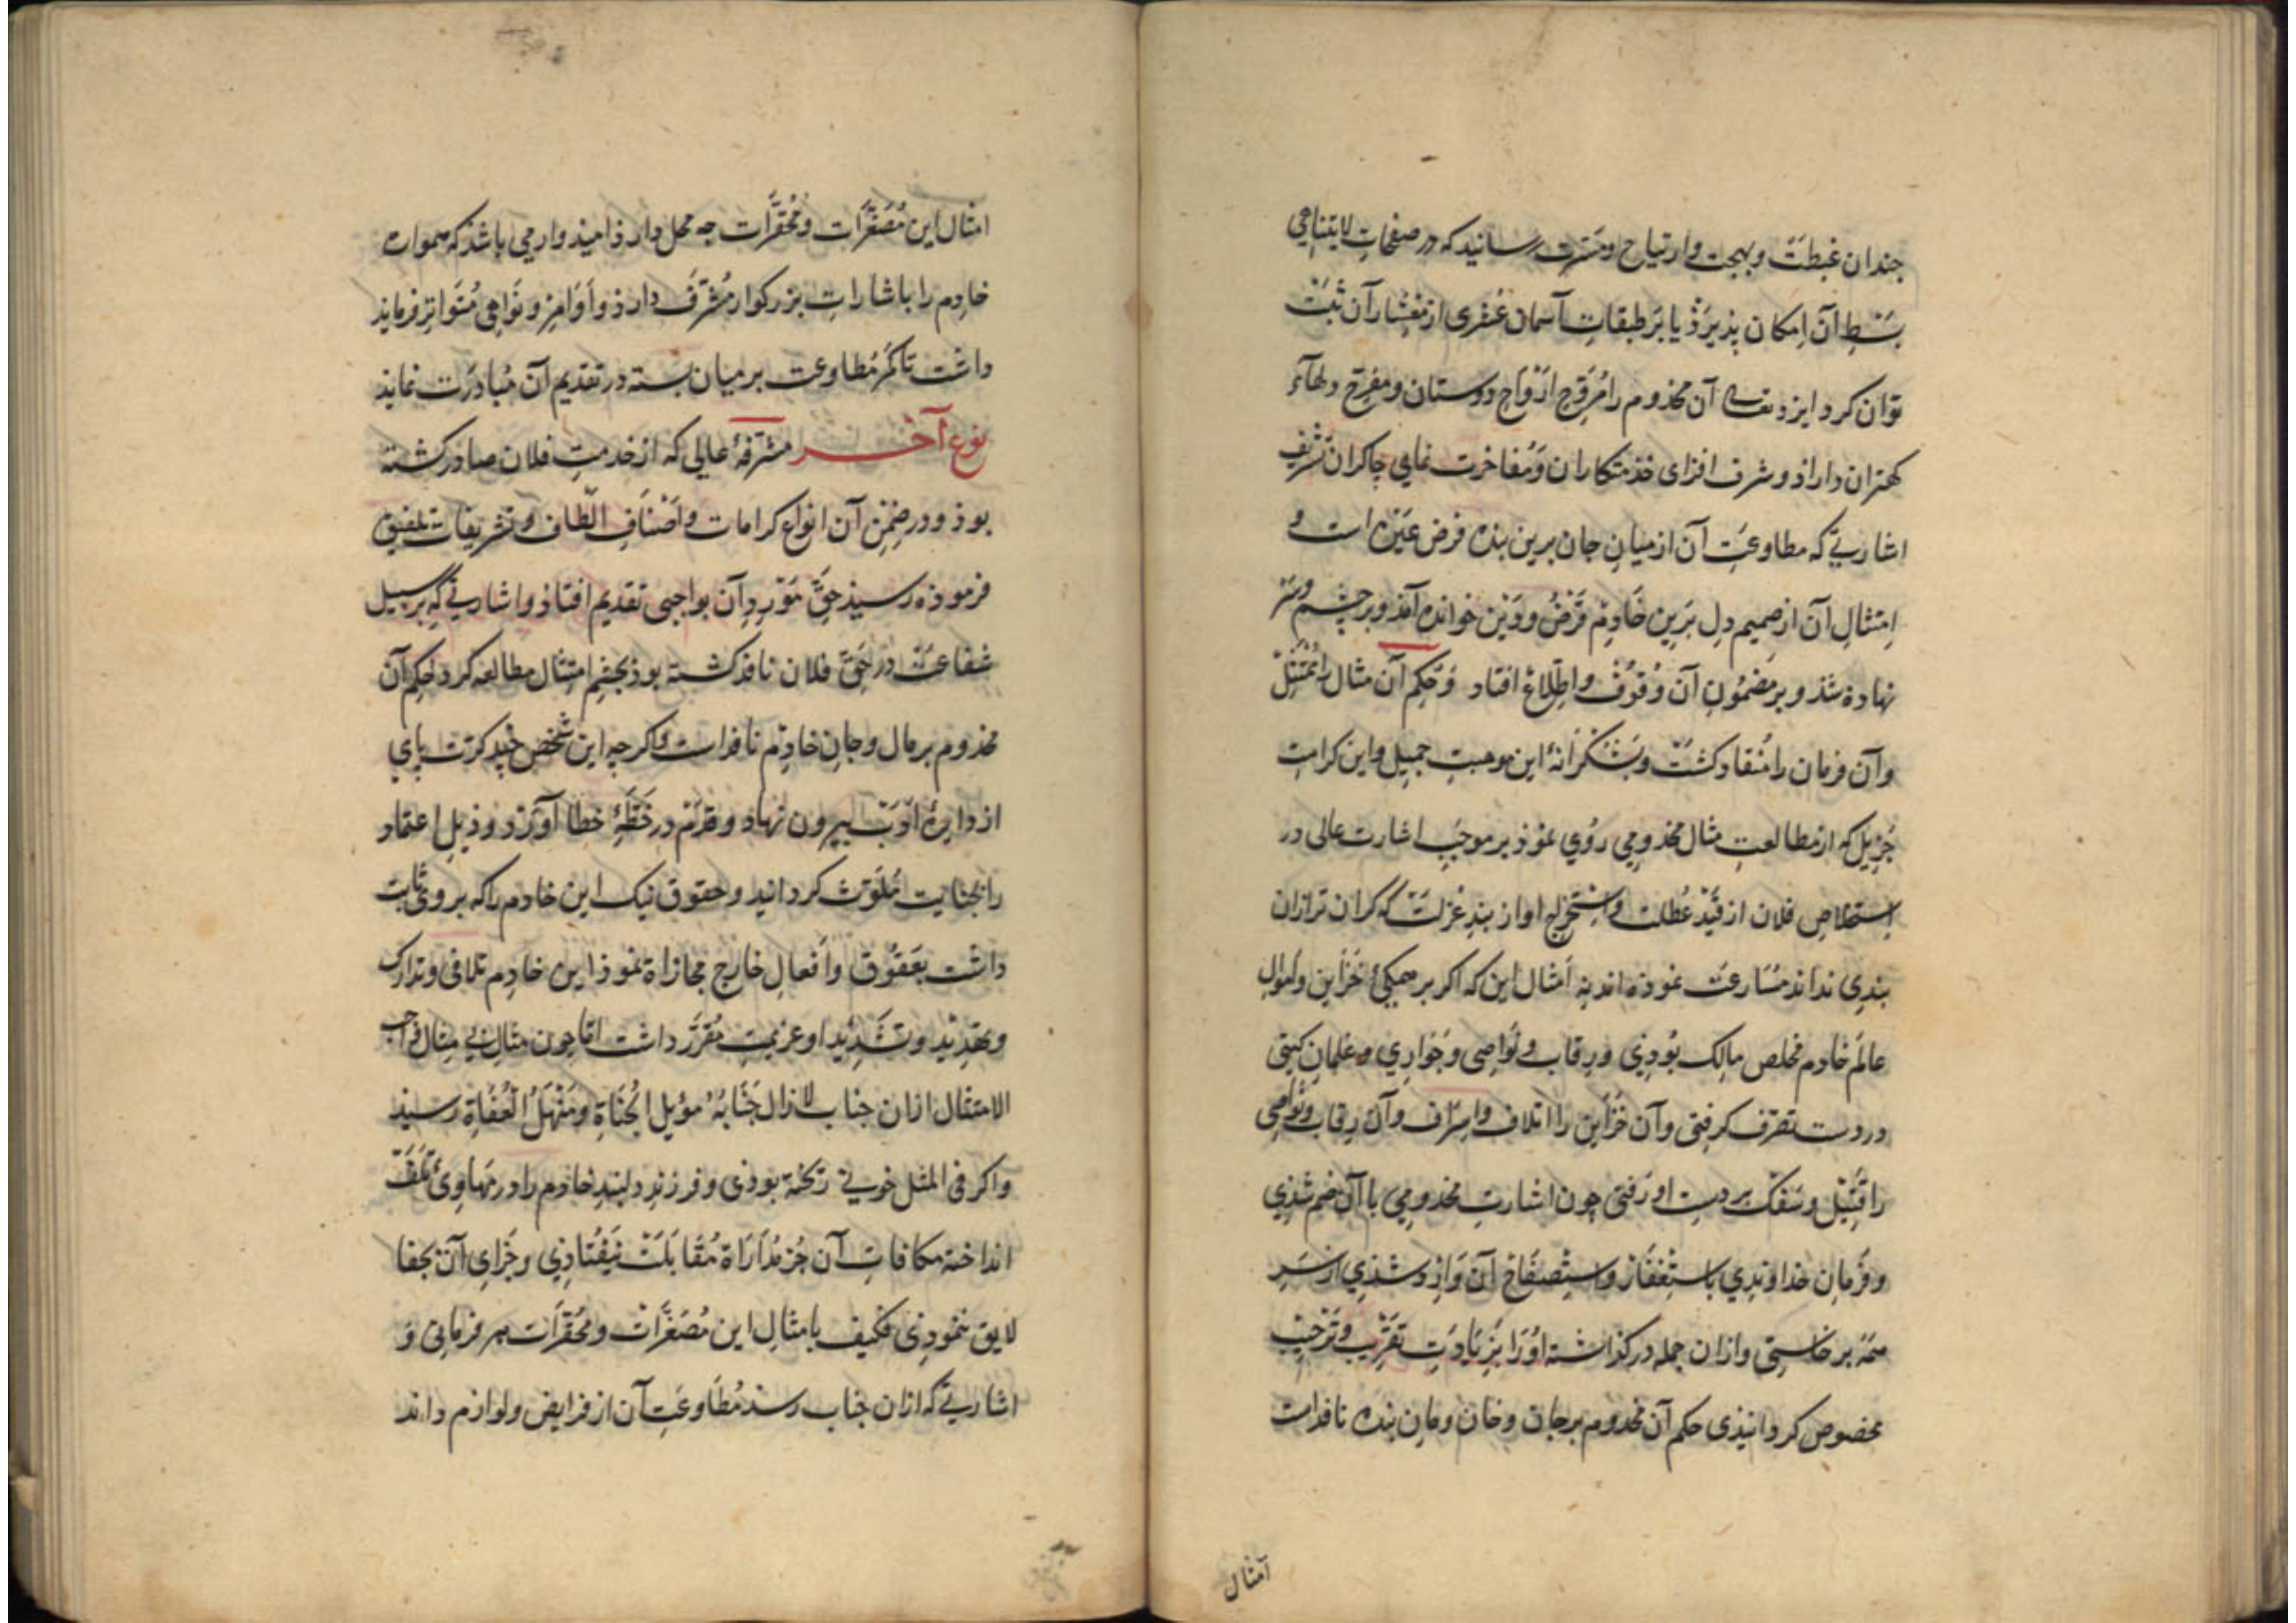 جندان غبطت و بهجت و ارتیاح و مسرت رسانید که در صفحات لایتناهی
بسط آن امکان پذیرذ یا بر طبقات آسمان عشری از معشار آن ثبت
توان کرد ایزد تعالی آن مخدوم را مروح ارواح دوستان و مفرح دلهاء
کهتران داراذ و شرف افزای خذمتکاران و مفاخرت نمای چاکران تشریف
اشارتی که مطاوعت آن از میان جان برین بنده فرض عین است و
امتثال آن از صمیم دل برین خادم قرض و دین خوانده آمذ و بر چشم و سر
نهاده شذ و بر مضمون آن وقوف و اطلاع افتاد و حکم آن مثال را ممتثل
و آن فرمان را منقاد کشت و بشکرانهٔ این موهبت جمیل و این کرامت
جزیل که از مطالعت مثال مخدومی روی نموذ بر موجب اشارت عالی در
استخلاص فلان از قید عطلت و استخراج او از بند عزلت که کران تر ازان
بندی نداند مسارعت نموذه اند نه امثال این که اکر بر همکی خزاین و اموال
عالم خادم مخلص مالک بوذی و رقاب و نواصی و جواری و غلمان کیتی
در دست تصرف کرفتی و آن خزاین را اتلاف و اسراف و آن رقاب و نواصی
را قتل و سفک بر دست او رفتی چون اشارت مخدومی با آن ضم شذی
و فرمان خداوندی باستغفار و استصفاح آن وارد شذی از سر
همه برخاستی و ازان جمله در کذاشته او را بزیادت تقریب و ترحیب
مخصوص کردانیذی حکم آن مخدوم بر جان و خان و مان بنده نافذ است
امثال
امثال این مصغرات و محقرات جه محل دارذ امیذوار می باشذ که هموارت
خادم را باشارات بزرکوار مشرف دارذ و اوامر و نواهی متواتر فرمایذ
داشت تا کمر مطاوعت بر میان بسته در تقدیم آن مبادرت نمایذ
نوع آخر مشرفهٔ عالی که از خدمت فلان صادر کشته
بوذ و در ضمن آن انواع کرامات و اصناف الطاف و تشریفات تلفیق
فرموذه رسیذ حق مورد آن بواجبی تقدیم افتاذ و اشارتی که بر سبیل
شفاعت در حق فلان نافذ کشته بوذ بجشم امتثال مطالعه کرد حکم آن
مخذوم بر مال و جان خادم نافذ است و اکرچه این شخص چند کرت پای
از دایرهٔ ادب بیرون نهاد و قدم در خطهٔ خطا آورد و ذیل اعتماد
را بجنایت ملوث کردانید و حقوق نیک این خادم را که بر وی ثابت
داشت بعقوق و افعال خارج مجازاة نموذ این خادم تلافی و تدارک
و تهدید و تشدید او عزیمت مقرر داشت اما جون مثال بی مثال واجب
الامتثال ازان جناب لا زال جنابه موئل الجناة و منهل العفاة رسیذ
و اکر فی المثل خونی ریخته بوذی و فرزند دلبند خادم را در مهاوی تلف
انداخته مکافات آن جز مداراة مقابلت نیفتاذی و جزای آن بجفا
لایق ننموذی فکیف بامثال این مصغرات و محقرات هر فرمانی و
اشارتی که ازان جناب رسد مطاوعت آن از فرایض و لوازم داند